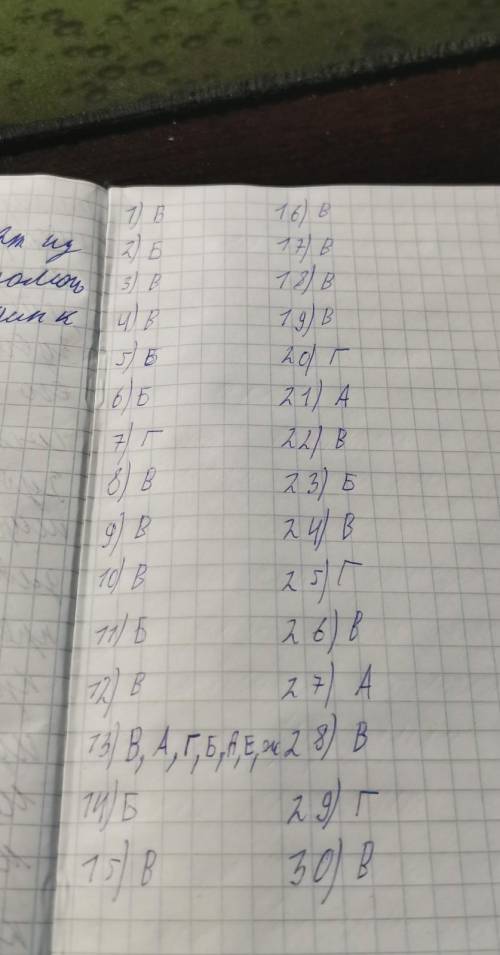 1) Б
2) Б
3) В
4) В
5) Б
6) Б
7) Г
8) В
9) В
10) В
11) Б
12) В
13) В, А, Г, Б, А, Е, ж
14) Б
15) В
16) В
17) В
18) В
19) В
20) Г
21) А
22) В
23) Б
24) В
25) Г
26) В
27) А
28) В
29) Г
30) В